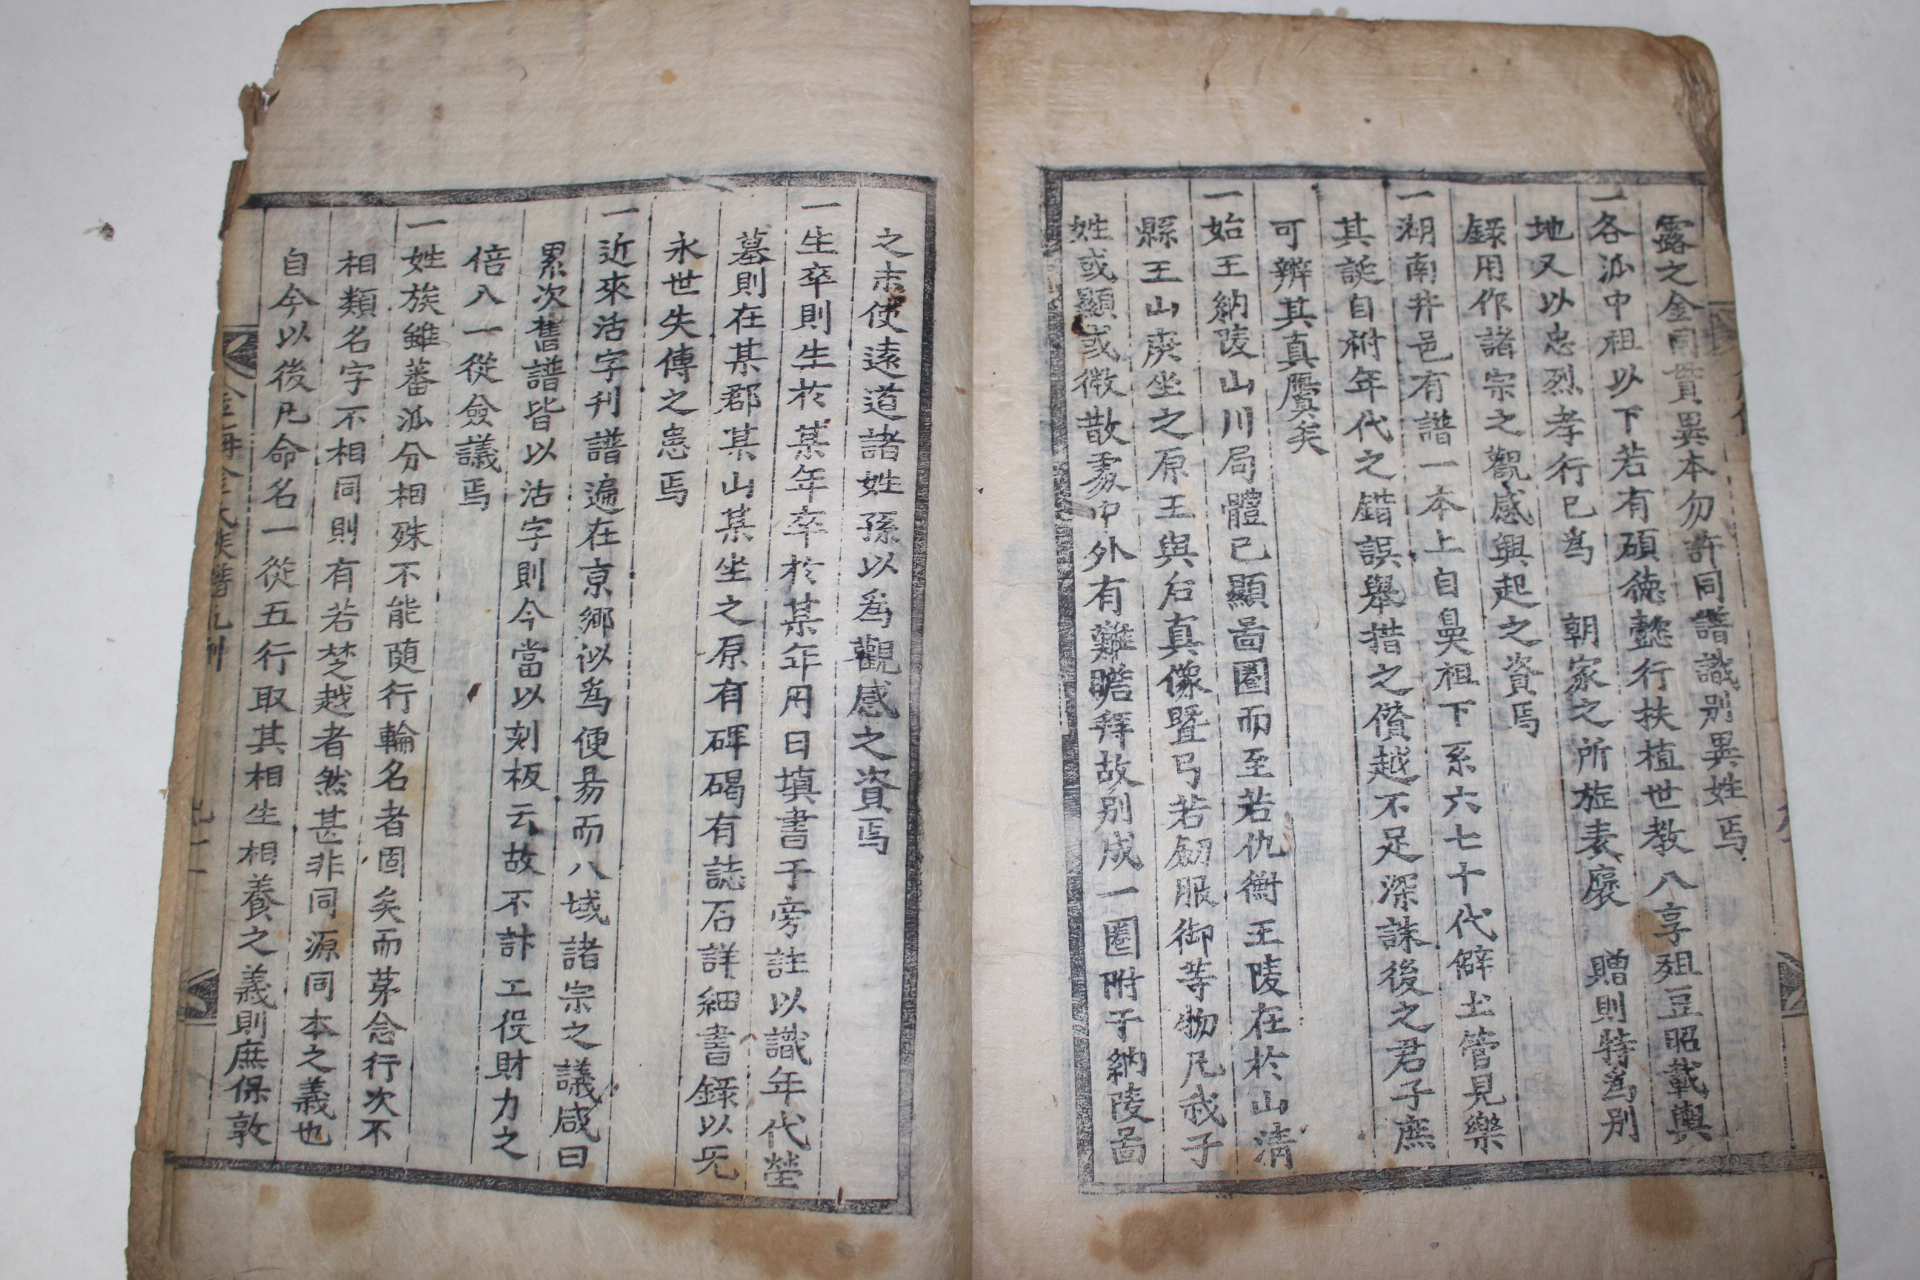 露之金同貫異本勿許同譜識別異姓焉
一各派中祖以下若有碩德懿行扶植世敎八享俎豆昭載輿
地又以忠烈孝行已爲 朝家之所旌表褒 贈則特爲別
錄用作諸宗之觀感興起之資焉
一湖南井邑有譜一本上自鼻祖下系六七十代僻土管見樂
其誕自稱年代之錯誤擧措之僭越不足深誅後之君子庶
可辨其真贋矣
一始王納陵山川局體已顯啚圈而至若仇衡王陵在於山淸
縣王山庚坐之原王與后真像曁弓若劒服御等物凡我子
姓或顯或微散處中外有難瞻拜故別成一圈附于納陵啚
之末使遠道諸姓孫以爲觀感之資焉
一生卒則生於某年卒於某年月日塡書于旁註以識年代塋
墓則在某郡某山某坐之原有碑碣有誌石詳細書錄以旡
永世失傳之患焉
一近來活字刊譜遍在京鄕似爲便易而八域諸宗之議咸曰
累次舊譜皆以活字則今當以刻板云故不計工役財力之
倍八一從僉議焉
一姓族雖蕃派分相殊不能随行輪名者固矣而苐念行次不
相類名字不相同則有若楚越者然甚非同源同本之義也
自今以後凡命名一從五行取其相生相養之義則庶保敦
金海金氏族譜凡例